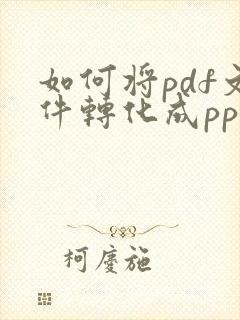 如何将pdf文
件轉化成pp
柯慶施